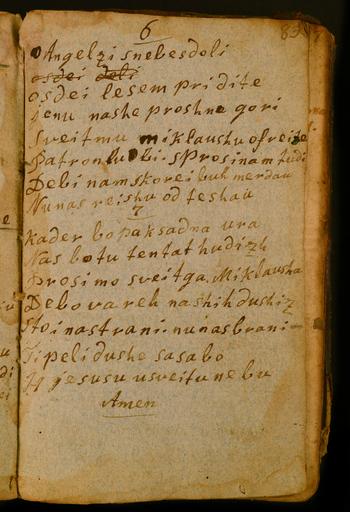 6
83
o Angelzi snebes doli
osdei doli
osdei lesem pridite
jenu nashe proshne gori
Sveitmu miklaushu ofreite
Patron lubi. sprosi nam tudi
De bi nam skorei buh merdau
Nu nas reishu od teshau
7
Kader bo paksadna ura
Nas bo tu tentat hudizh
Prosimo sveitga Miklausha
De bo vareh nashih dushiz
Sto i na strani. nu nas brani
Ti peli dushe sa sabo
H jesusu u sveitu nebu
Amen